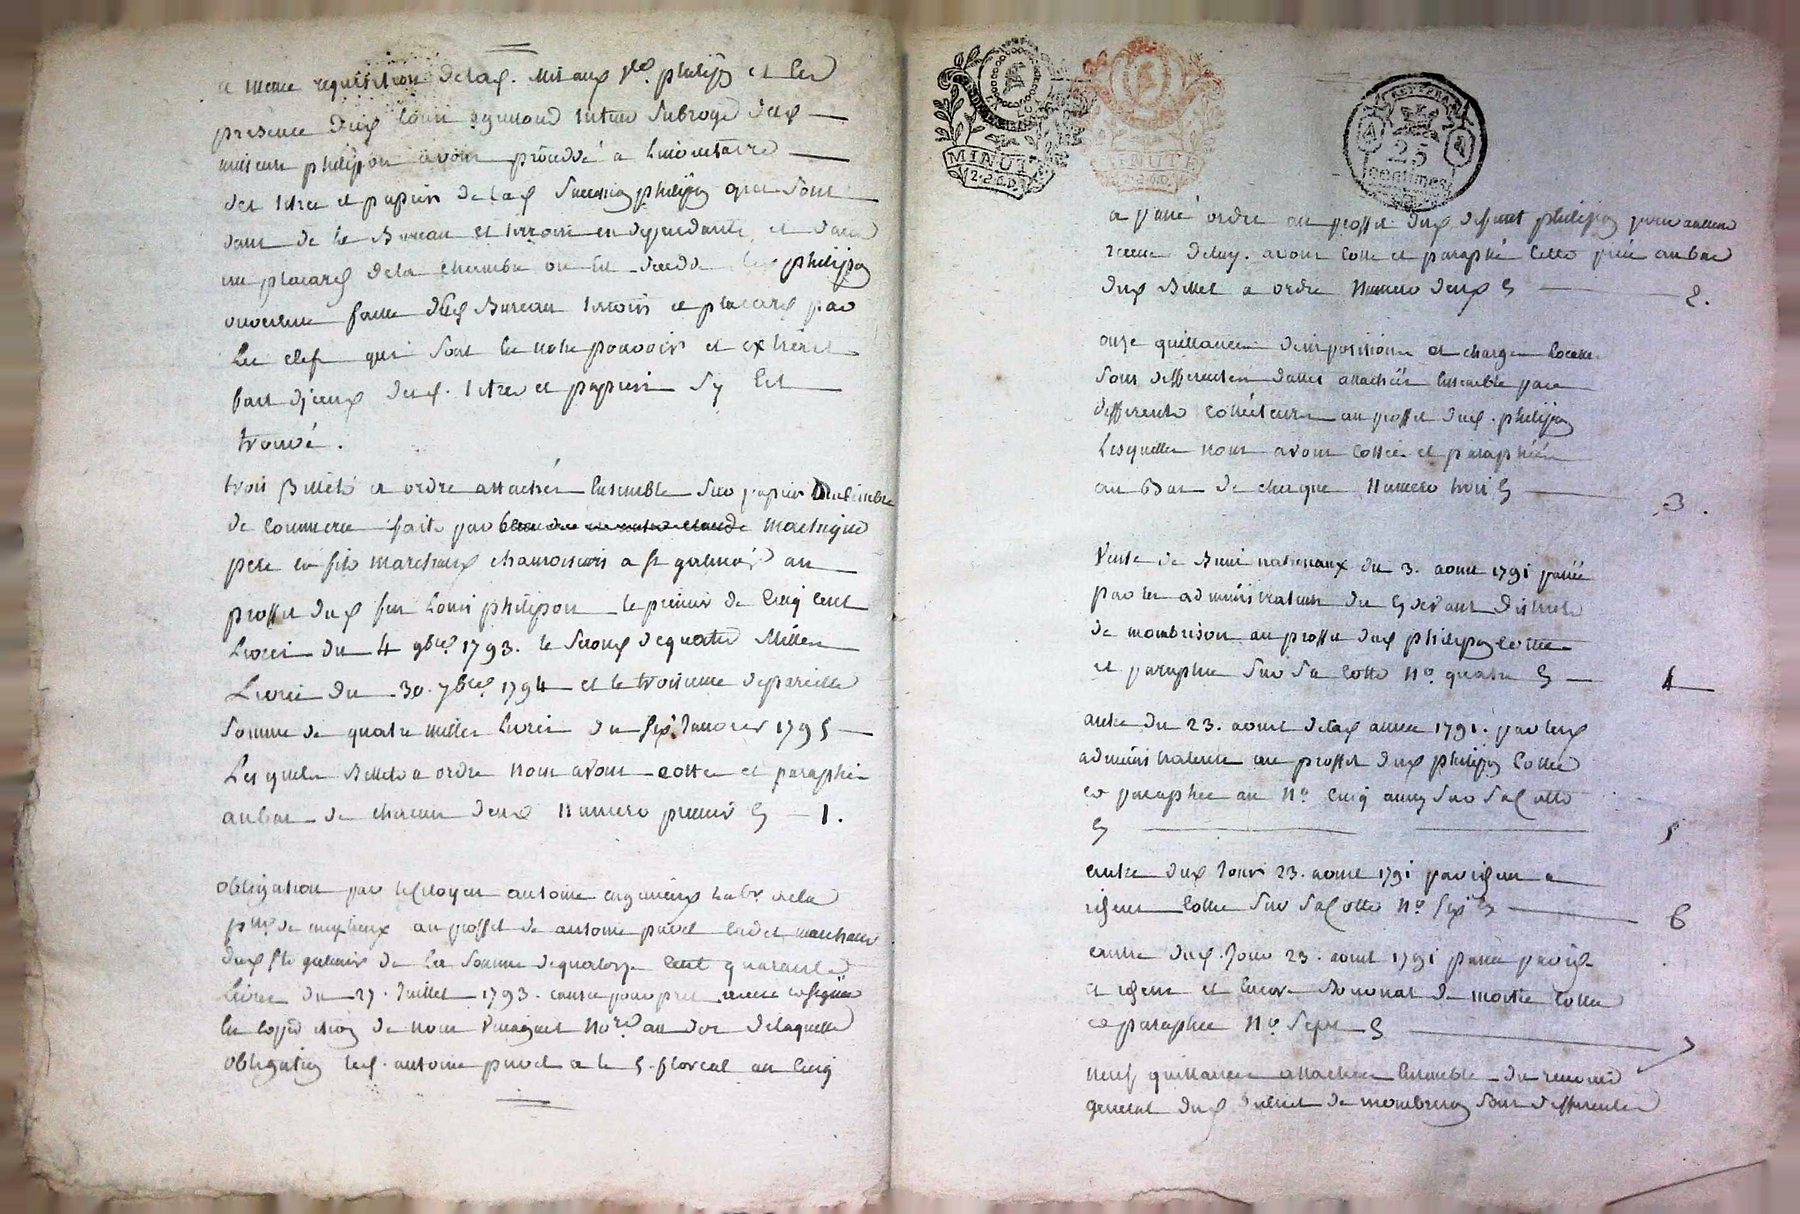 a meme requisition de lad. Mitaux ve. philipon et les
presence dud. Louis eymond tuteur subrogé des d.
mineurs philipon avons procédé a linventaire
des titres et papiers de lad. succession philipon qui sont
dans de le Bureau et tiroirs en dependants et dans
un placard de la chambre ou est decedé led. philipon
ouverture faite dud. Bureau tiroirs et placard par
les clefs qui sont en notre pouvoir et extrait
fait d'iceux desd. titres et papiers sy est
trouvé.
trois Billets a ordre attachés ensemble sur papier du timbre
de commerce faits par Maclnique
pere et fils marchand chamoiseurs a st galmier au
proffit dud. feu Louis philipon le premier de Cinq Cent
Livres du 4 9bre. 1793. le second de quatre Milles
Livres du 30. 7bre. 1794 et le troisieme de pareille
somme de quatre milles Livres du six Janvier 1795
Lesquels Billets a ordre nous avons cotté et paraphé
au bas de chacun deux Numero premier 1.
obligation par le citoyen antoine labr. de la
psse de au proffit de antoine pavel cadet marchand
dud. st galmier de la somme de quatorze cent quarante
Livres du 27. Juillet 1793. cause pour pret recue
en expedition de nous Nore. au dos de laquelle
obligation led. antoine pavel a le 5. floreal an Cinq
MINUTE
12. 2. 6. D.
MINUTE
12. 2. 6. D.
25
centimes
a passé ordre au proffit dud. defunt philipon pour valeur
recue deluy. avons cotté et paraphé cette piece au bas
dud. Billet a ordre Numero deux 2.
onze quittances d'imposition et charges locales
sous differentes dattes attachées ensemble par
differents collecteurs au proffit dud. philipon
Lesquelles nous avons cottées et paraphées
au Bas de chaque Numero trois 3.
Vente de Biens nationaux du 3. aout 1791 passée
par les administrateurs du cydevant District
de montbrison au proffit dud. philipon cottée
et paraphée sur sa cotte No. quatre 4
autre du 23. aout delad. année 1791. par lesd.
administrateurs au proffit dud. philipon cottée
et paraphée au No. cinq aussy sur sa cotte
5
autre dud. Jour 23. aout 1791 par
cottée sur sa cotte No. six 6
autre dud. Jour 23. aout 1791 passée par
et encore de moitié cottée
et paraphée No. Sept 7
neuf quittances attachées ensemble du receveur
general dud. district de montbrison sous differentes